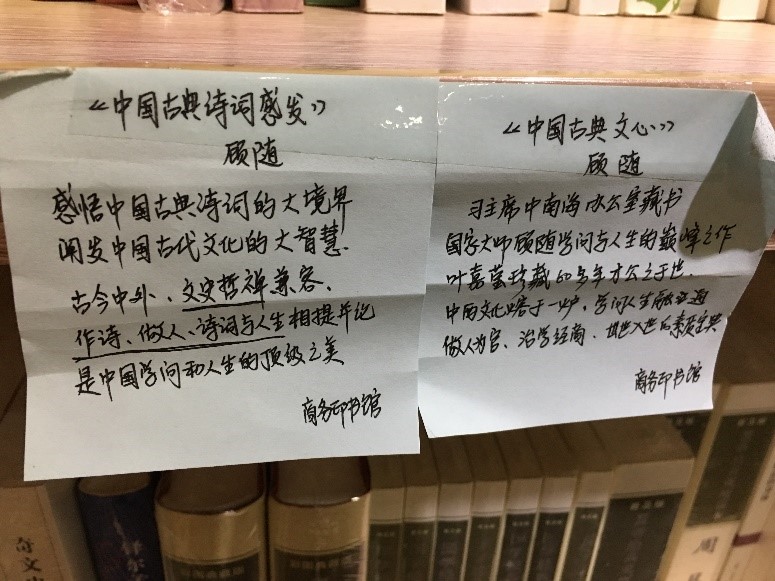 《中国古典诗词感发》
顾随
感悟中国古典诗词的大境界
开发中国古代文化的大智慧.
古今中外、文史哲禅兼容、
作诗、做人、诗词与人生相提并论
是中国学问和人生的顶级之美
商务印书馆
《中国古典文心》
顾随
习主席中南海办公室藏书
国家大师顾随学问与人生的巅峰之作
叶嘉莹珍藏60多年才公之于世.
中西文化熔于一炉、学问人生融
做人为官、治学经商、出世入世的素质宝典
商务印书馆
奇文